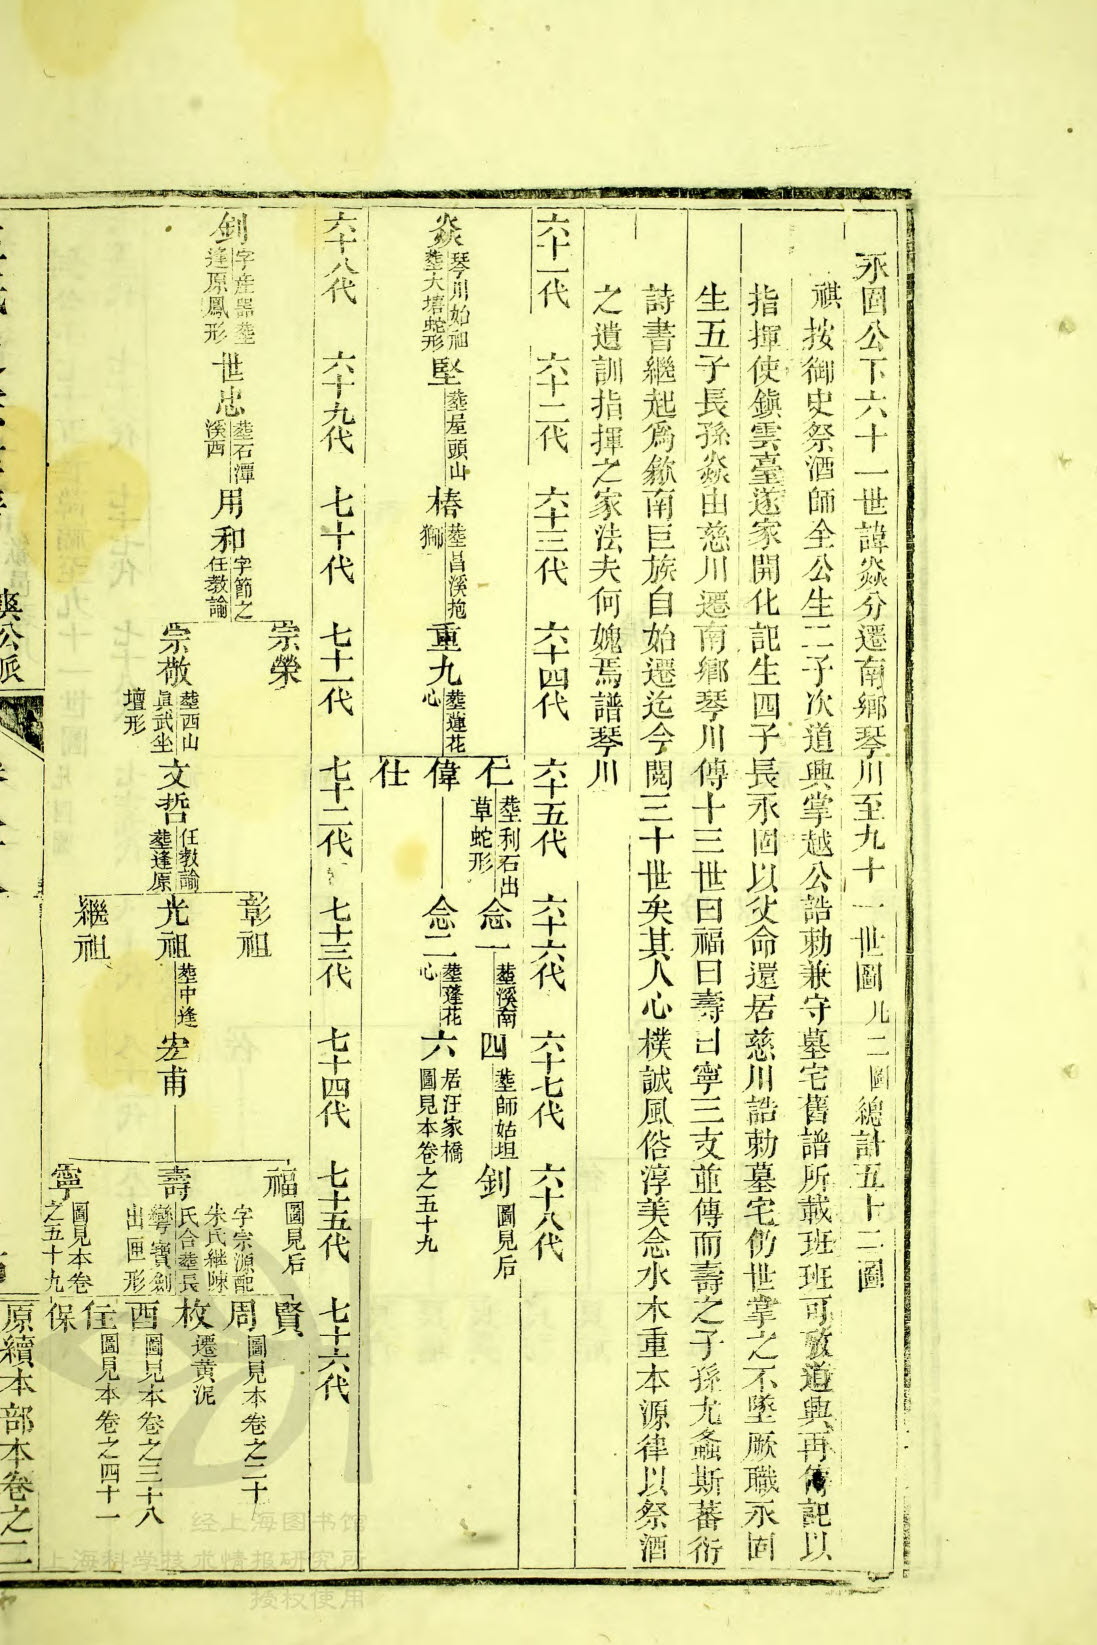 永固公下六十一世諱焱分遷南鄉琴川至九十一世圖凡二圖總計五十二圖
祺按御史祭酒師全公生二子次道興掌越公誥勅兼守墓宅舊譜所載班班可攷道興再傳記以
指揮使鎮雲臺遂家開化記生四子長永固以父命還居慈川誥勅墓宅仍世掌之不墜厥職永固
生五子長孫焱由慈川遷南鄉琴川傳十三世曰福曰壽曰寧三支並傳而壽之子孫尤螽斯蕃衍
詩書繼起爲歙南巨族自始遷迄今閱三十世矣其人心樸誠風俗淳美念水木重本源律以祭酒
之遺訓指揮之家法夫何媿焉譜琴川
六十一代 六十二代 六十三代 六十四代 六十五代 六十六代 六十七代 六十八代
焱 琴川始祖葬大塘蛇形
堅 葬屋頭山
椿 葬昌溪抱獅
重九 葬蓮花心
仁 葬利石出草蛇形
念一 葬溪南
四 葬師姑坦
釗 圖見后
偉
念二 葬蓬花心
六 居汪家橋圖見本卷之五十九
仕
六十八代 六十九代 七十代 七十一代 七十二代 七十三代 七十四代 七十五代 七十六代
釗 字産器葬逢原鳳形
世忠 葬石潭溪西
用和 字節之任教諭
宗榮
宗敬 葬西山真武坐壇形
文哲 任教諭葬逢原
彰祖
光祖 葬中逢
繼祖
宏甫
福 圖見后
壽 字宗源配朱氏繼陳氏合葬長彎寶劍出匣形
寧 圖見本卷之五十九
賢
周 圖見本卷之二十
枚 遷黄泥
酉 圖見本卷之三十八
圖見本卷之四十一
保
公派
原續本部本卷之二
经上海图书馆
上海科学技术情报研究所
授权使用